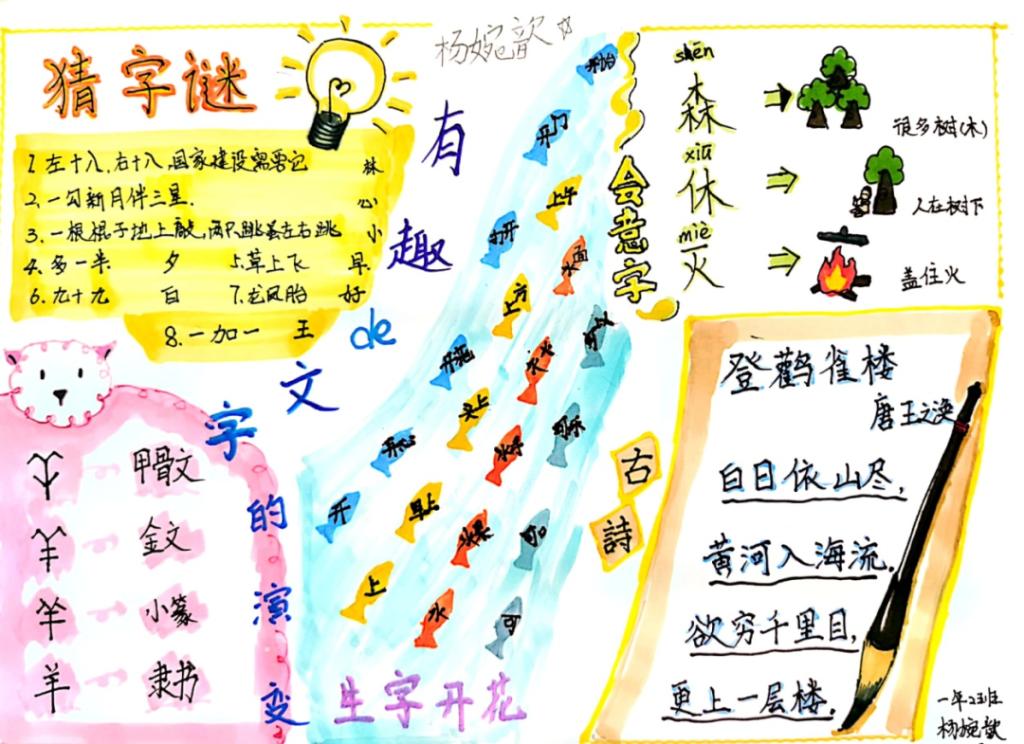 杨婉歆
猜字谜
1.左十八,右十八,国家建设需要它 林
2.一勾新月伴三星. 心
3.一根棍子地上敲,两只跳蚤左右跳 小
4.多一半 夕 5.草上飞 早
6.九十九 白 7.龙凤胎 好
8.一加一 王
有趣de文字
字的演变
甲骨文
金文
小篆
羊 隶书
开始
开门
打开
开花
开心
开
上午
上方
头上
早上
上
水面
水火
水牛
水果
水
可以
可乐
可
生字开花
会意字
shēn
森
很多树(木)
xiū
休
人在树下
miè
灭
盖住火
古詩
登鹳雀楼
唐 王之涣
白日依山尽,
黄河入海流.
欲穷千里目,
更上一层楼.
一年2班
杨婉歆